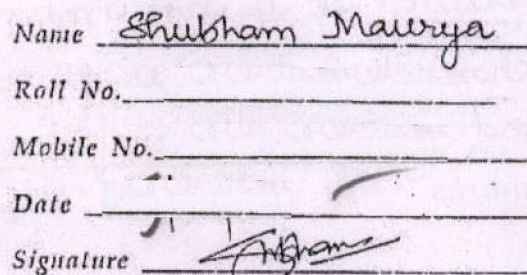 Name Shubham Maurya
Roll No.
Mobile No.
Date
Signature Shubham